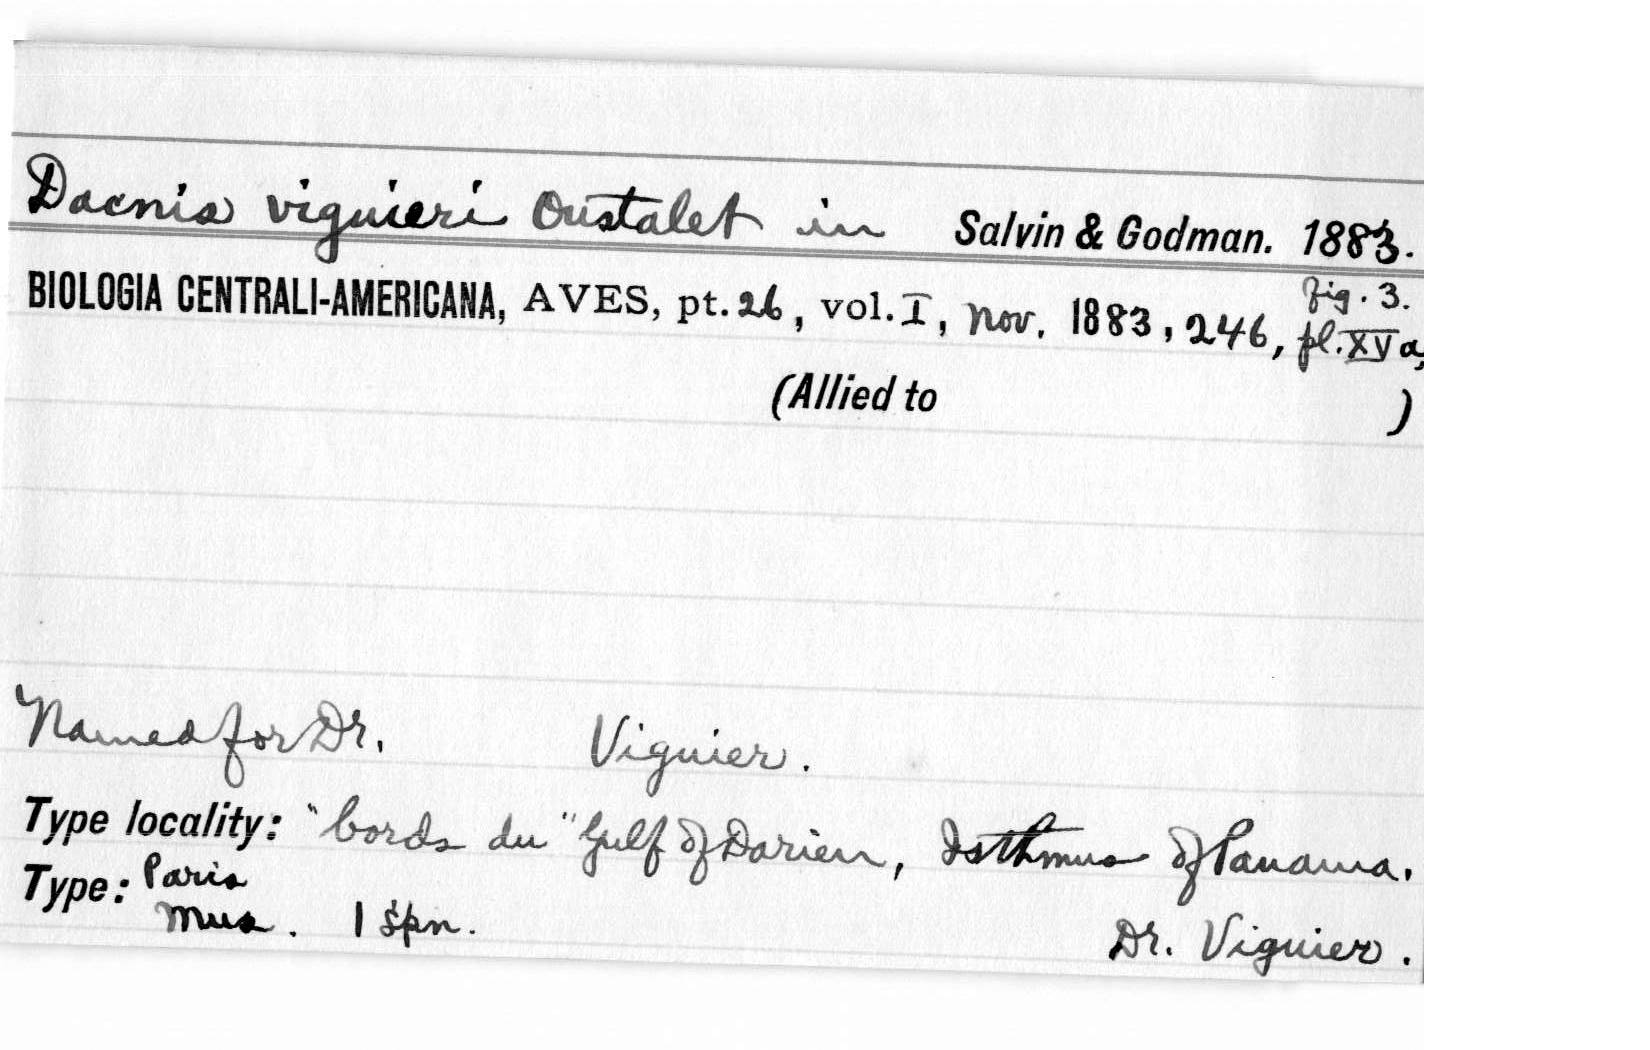 Dacnis viguieri Oustalet in Salvin & Godman. 1883.
BIOLOGIA CENTRALI-AMERICANA, AVES, pt. 26, vol. I, Nov. 1883, 246, pl. XV a,
fig. 3.
(Allied to )
Named for Dr. Viguier.
Type locality: "bords du" Gulf of Darien, Isthmus of Panama.
Type: Paris
Mus. 1 spn.
Dr. Viguier.